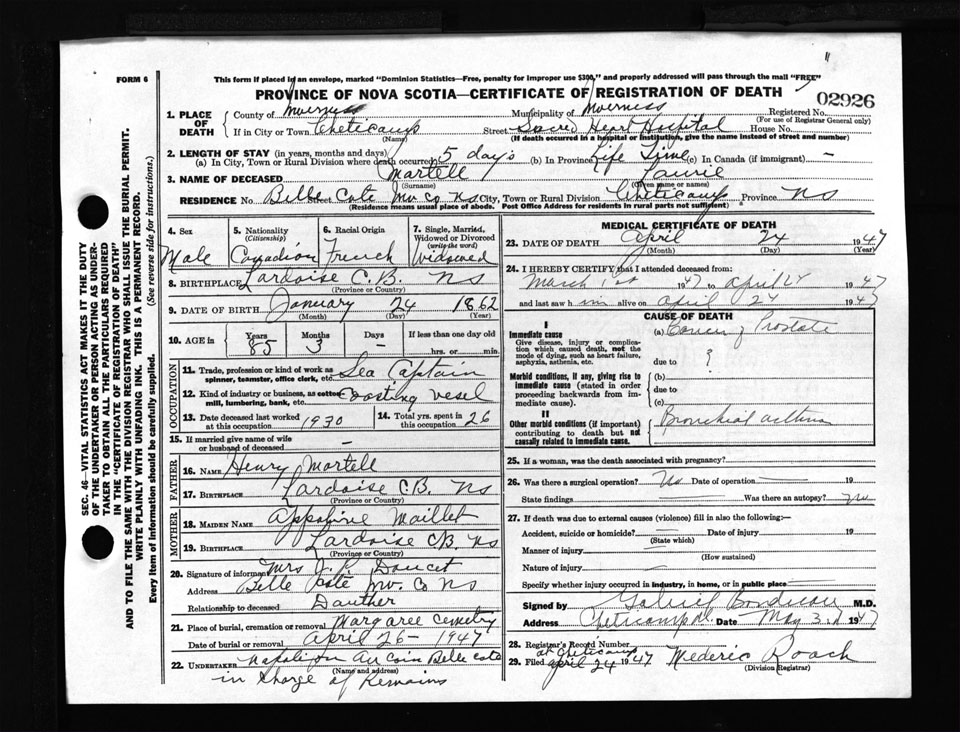 FORM 6
This form if placed in an envelope, marked "Dominion Statistics—Free, penalty for improper use $300," and properly addressed will pass through the mail "FREE"
PROVINCE OF NOVA SCOTIA—CERTIFICATE OF REGISTRATION OF DEATH
02926
1. PLACE OF DEATH { County of Inverness Municipality of Inverness Registered No.
(For use of Registrar General only)
If in City or Town Cheticamp Street Sacre Heart Hospital House No.
(Name) (If death occurred in a hospital or institution, give the name instead of street and number)
2. LENGTH OF STAY (in years, months and days)
(a) In City, Town or Rural Division where death occurred 5 days (b) In Province Life Time (c) In Canada (if immigrant) —
3. NAME OF DECEASED Martell Laurie
(Surname) (Given name or names)
RESIDENCE No. Belle Cote Street Inv. Co. NS City, Town or Rural Division Cheticamp Province NS
(Residence means usual place of abode. Post Office Address for residents in rural parts not sufficient)
4. Sex Male
5. Nationality (Citizenship) Canadian
6. Racial Origin French
7. Single, Married, Widowed or Divorced (write the word) Widowed
8. BIRTHPLACE Lardoise C.B. NS
(Province or Country)
9. DATE OF BIRTH January 24 1862
(Month) (Day) (Year)
10. AGE in { Years 85 Months 3 Days — If less than one day old
hrs. or min.
OCCUPATION
11. Trade, profession or kind of work as spinner, teamster, office clerk, etc. Sea Captain
12. Kind of industry or business, as cotton mill, lumbering, bank, etc. Costing vesel
13. Date deceased last worked at this occupation 1930
14. Total yrs. spent in this occupation 26
15. If married give name of wife or husband of deceased —
FATHER
16. NAME Henry Martell
17. BIRTHPLACE Lardoise C.B. NS
(Province or Country)
MOTHER
18. MAIDEN NAME Maillet
19. BIRTHPLACE Lardoise C.B. NS
(Province or Country)
20. Signature of informant Mrs J. P. Doucet
Address Belle Cote Inv. Co NS
Relationship to deceased Dauther
21. Place of burial, cremation or removal Margaree Cemetry
Date of burial or removal April 26 - 1947
22. UNDERTAKER Napolion Au Coin Belle Cote
(Name and address)
in Charge of Remains
MEDICAL CERTIFICATE OF DEATH
23. DATE OF DEATH April 24 1947
(Month) (Day)
24. I HEREBY CERTIFY that I attended deceased from:
March 1st 1947 to April 24 1947
and last saw him alive on April 24 1947
CAUSE OF DEATH
I
Immediate cause
Give disease, injury or complication which caused death, not the mode of dying, such as heart failure, asphyxia, asthenia, etc.
(a) Cancer of Prostate
due to ?
Morbid conditions, if any, giving rise to immediate cause (stated in order proceeding backwards from immediate cause).
(b)
due to
(c)
II
Other morbid conditions (if important) contributing to death but not causally related to immediate cause.
Bronchial asthma
25. If a woman, was the death associated with pregnancy?
26. Was there a surgical operation? No Date of operation —
State findings — Was there an autopsy? no
27. If death was due to external causes (violence) fill in also the following:—
Accident, suicide or homicide? — Date of injury 19
(State which)
Manner of injury —
(How sustained)
Nature of injury —
Specify whether injury occurred in industry, in home, or in public place —
Signed by Gabriel Boudreau M.D.
Address Cheticamp Date May 3rd 1947
28. Registrar's Record Number
at Cheticamp
29. Filed april 24 1947 Mederic Roach
(Division Registrar)
SEC. 46—VITAL STATISTICS ACT MAKES IT THE DUTY OF THE UNDERTAKER OR PERSON ACTING AS UNDERTAKER TO OBTAIN ALL THE PARTICULARS REQUIRED IN THE "CERTIFICATE OF REGISTRATION OF DEATH" AND TO FILE THE SAME WITH THE DIVISION REGISTRAR WHO SHALL ISSUE THE BURIAL PERMIT.
WRITE PLAINLY WITH UNFADING INK. THIS IS A PERMANENT RECORD.
Every item of information should be carefully supplied. (See reverse side for instructions.)